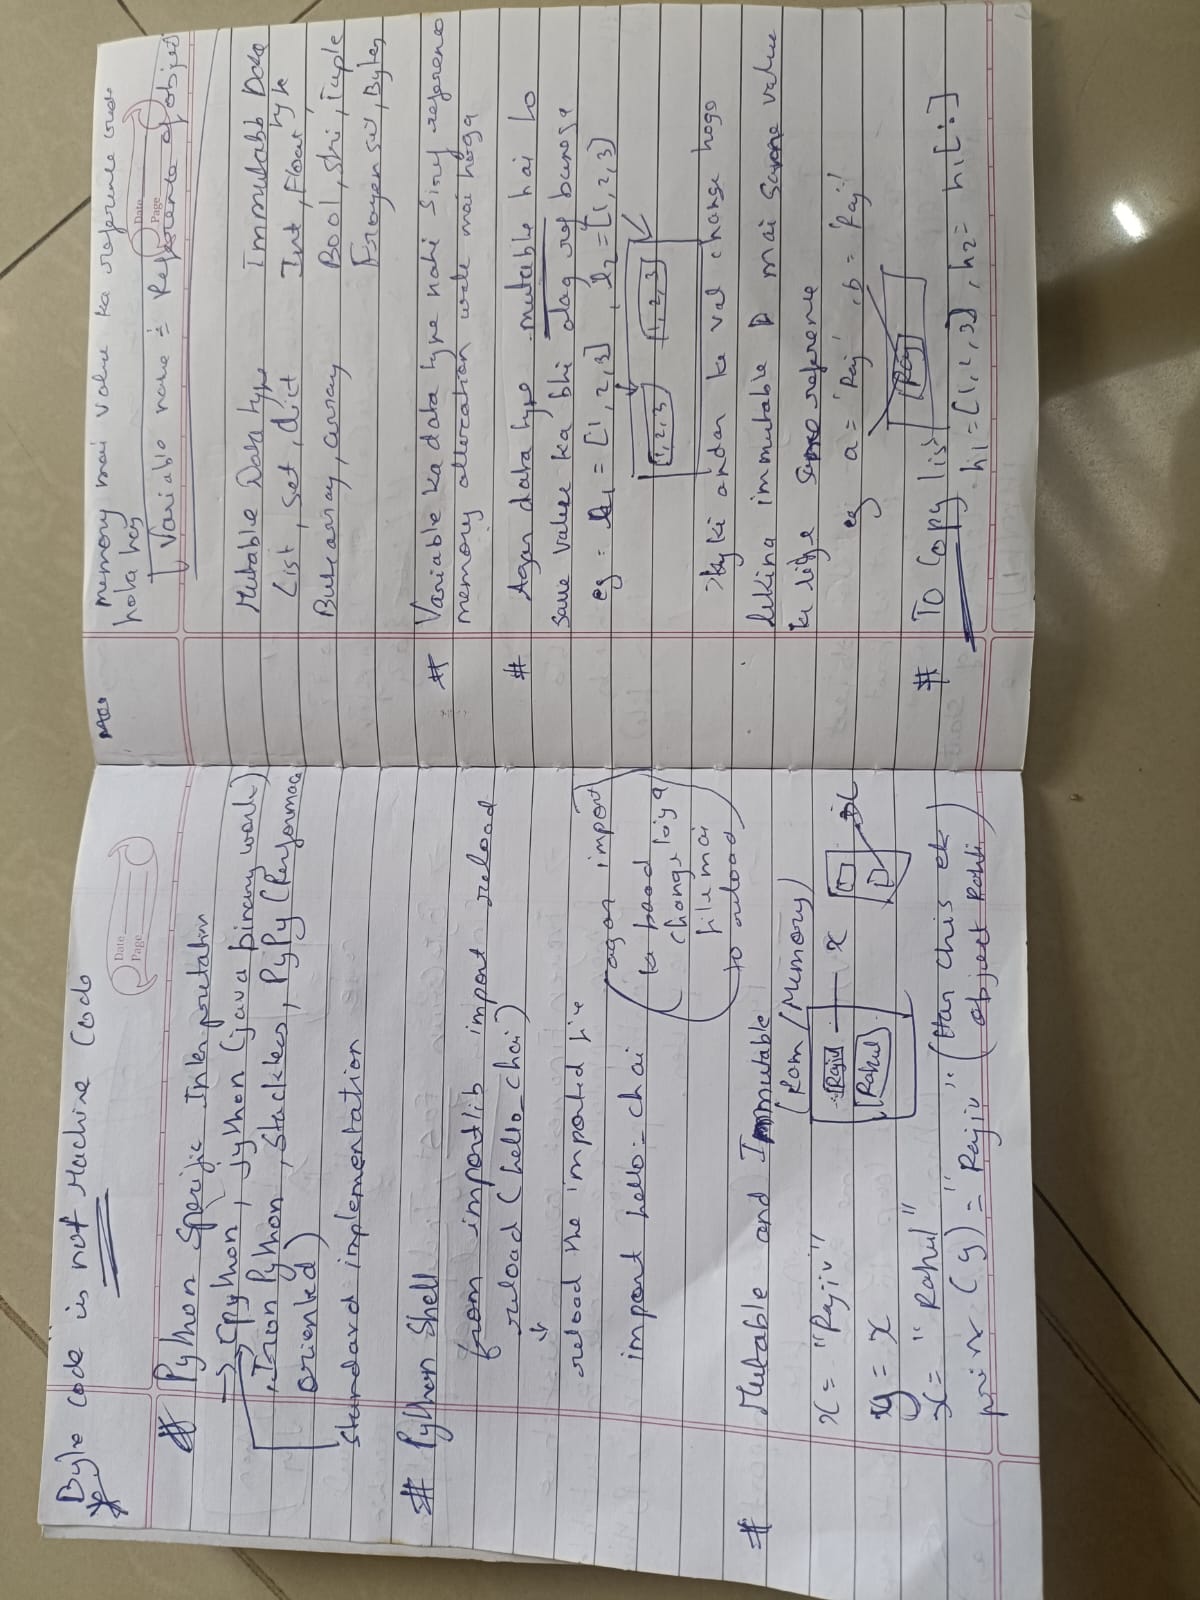 Byte code is not Machine Code
Date
Page
# Python Specific Interpretation
→ CPython, Jython (java binary work)
, Iron Python, Stackless, PyPy (Performance
oriented)
Standard implementation
# Python Shell
from importlib import reload
reload (hello_chai)
↓
reload the imported file
import hello_chai
(agar import
ke baad
change kiya
file mai
to reload)
# Mutable and Immutable
(Ram/Memory)
x = "Rajiv"
Rajiv
x
y = x
Rahul
x = "Rahul"
print(y) = "Rajiv" (Har chis ek
object hai)
memory mai value ka reference count
hota hai
Date
Page
Variable name = Reference of object
Mutable Data type
Immutable Data type
List, Set, dict
Int, Float
Bytearray, array
Bool, Str, Tuple
Frozenset, Bytes
# Variable ka data type nahi sirf reference
memory allocation wale mai hoga
# Agar data type mutable hai to
same value ka bhi alag ref banega
eg = l1 = [1, 2, 3], l2 = [1, 2, 3]
1, 2, 3
1, 2, 3
kyki andar ke val change hoga
lekina immutable mai same value
ke liye same reference
eg a = 'Raj', b = 'Raj'
Raj
# To Copy list
h1 = [1, 2, 3], h2 = h1[:]